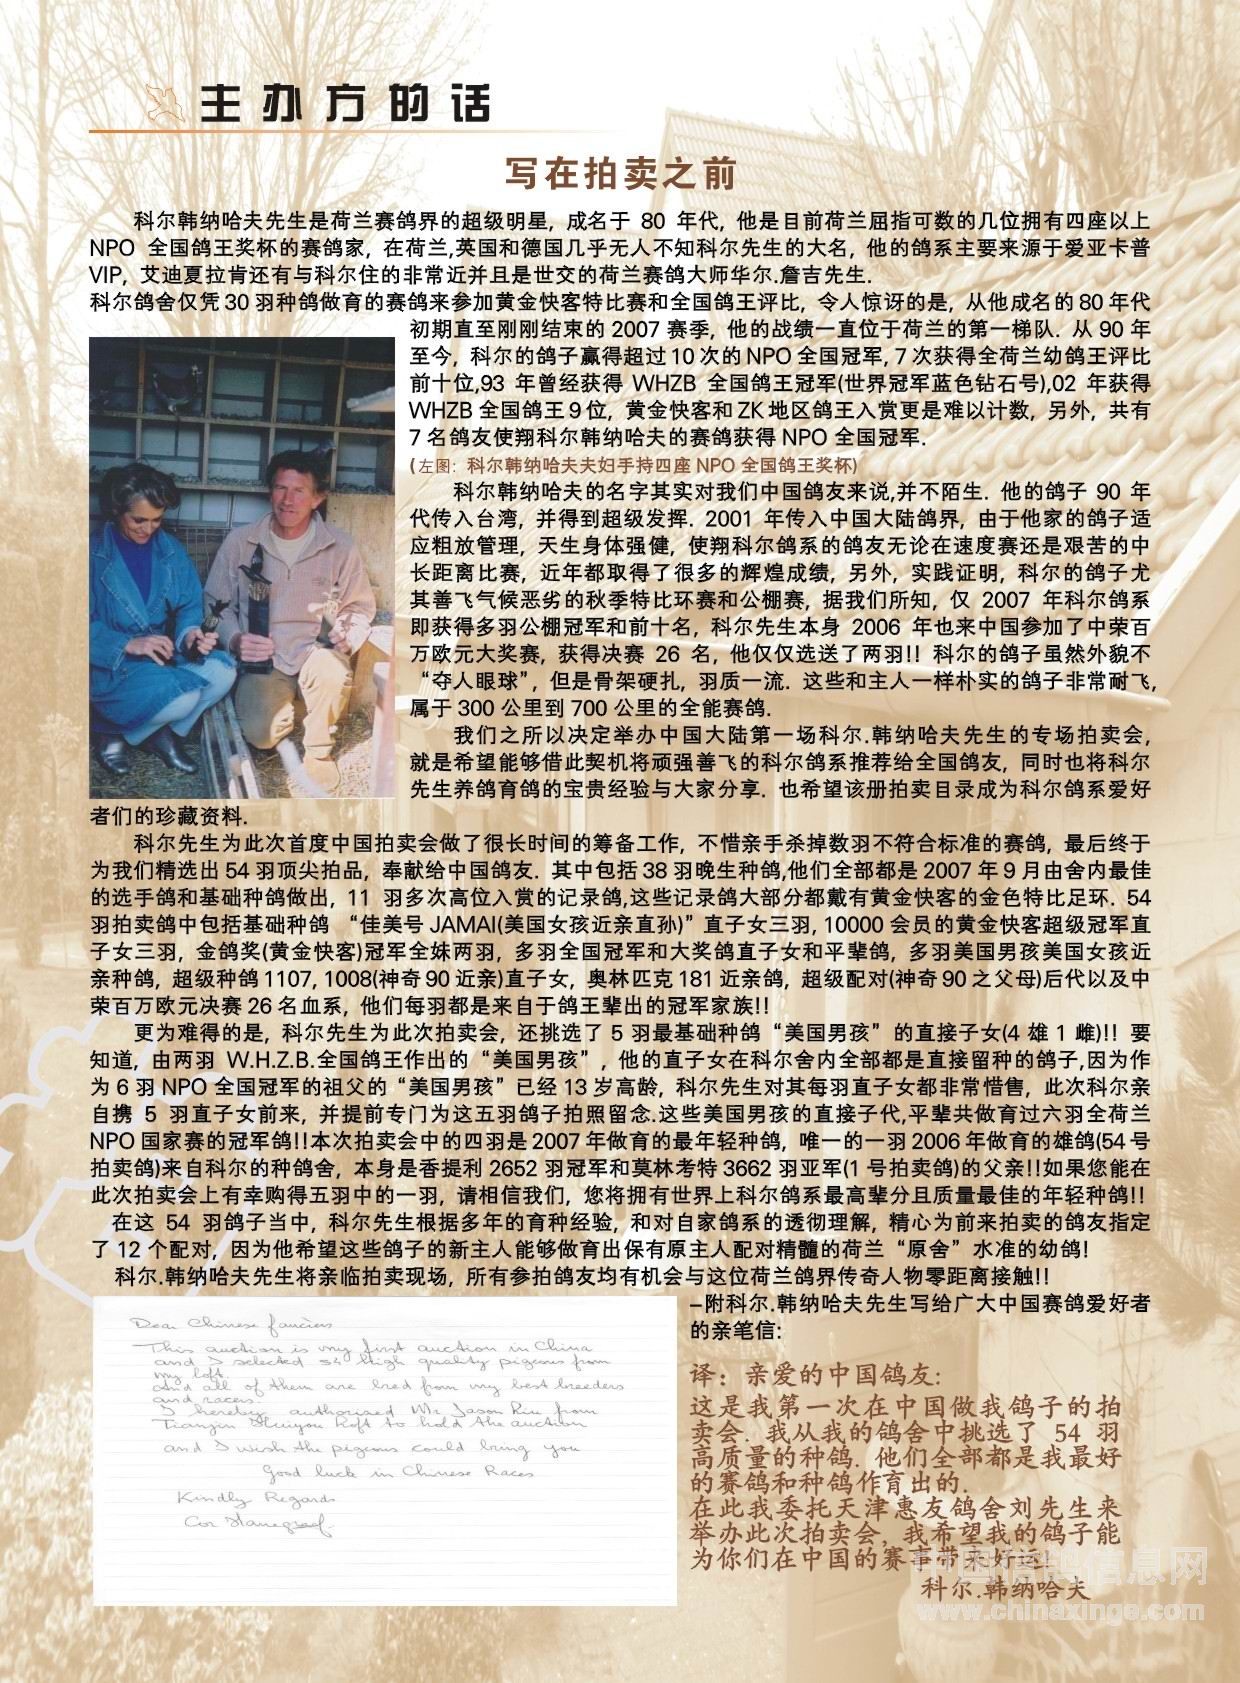 主办方的话
写在拍卖之前
科尔韩纳哈夫先生是荷兰赛鸽界的超级明星, 成名于 80 年代, 他是目前荷兰屈指可数的几位拥有四座以上
NPO 全国鸽王奖杯的赛鸽家, 在荷兰,英国和德国几乎无人不知科尔先生的大名, 他的鸽系主要来源于爱亚卡普
VIP, 艾迪夏拉肯还有与科尔住的非常近并且是世交的荷兰赛鸽大师华尔.詹吉先生.
科尔鸽舍仅凭 30 羽种鸽做育的赛鸽来参加黄金快客特比赛和全国鸽王评比, 令人惊讶的是, 从他成名的 80 年代
初期直至刚刚结束的 2007 赛季, 他的战绩一直位于荷兰的第一梯队. 从 90 年
至今, 科尔的鸽子赢得超过 10 次的 NPO 全国冠军, 7 次获得全荷兰幼鸽王评比
前十位,93 年曾经获得 WHZB 全国鸽王冠军(世界冠军蓝色钻石号),02 年获得
WHZB 全国鸽王 9 位, 黄金快客和 ZK 地区鸽王入赏更是难以计数, 另外, 共有
7 名鸽友使翔科尔韩纳哈夫的赛鸽获得 NPO 全国冠军.
(左图: 科尔韩纳哈夫夫妇手持四座 NPO 全国鸽王奖杯)
科尔韩纳哈夫的名字其实对我们中国鸽友来说,并不陌生. 他的鸽子 90 年
代传入台湾, 并得到超级发挥. 2001 年传入中国大陆鸽界, 由于他家的鸽子适
应粗放管理, 天生身体强健, 使翔科尔鸽系的鸽友无论在速度赛还是艰苦的中
长距离比赛, 近年都取得了很多的辉煌成绩, 另外, 实践证明, 科尔的鸽子尤
其善飞气候恶劣的秋季特比环赛和公棚赛, 据我们所知, 仅 2007 年科尔鸽系
即获得多羽公棚冠军和前十名, 科尔先生本身 2006 年也来中国参加了中荣百
万欧元大奖赛, 获得决赛 26 名, 他仅仅选送了两羽!! 科尔的鸽子虽然外貌不
“夺人眼球”, 但是骨架硬扎, 羽质一流. 这些和主人一样朴实的鸽子非常耐飞,
属于 300 公里到 700 公里的全能赛鸽.
我们之所以决定举办中国大陆第一场科尔.韩纳哈夫先生的专场拍卖会,
就是希望能够借此契机将顽强善飞的科尔鸽系推荐给全国鸽友, 同时也将科尔
先生养鸽育鸽的宝贵经验与大家分享. 也希望该册拍卖目录成为科尔鸽系爱好
者们的珍藏资料.
科尔先生为此次首度中国拍卖会做了很长时间的筹备工作, 不惜亲手杀掉数羽不符合标准的赛鸽, 最后终于
为我们精选出 54 羽顶尖拍品, 奉献给中国鸽友. 其中包括 38 羽晚生种鸽,他们全部都是 2007 年 9 月由舍内最佳
的选手鸽和基础种鸽做出, 11 羽多次高位入赏的记录鸽,这些记录鸽大部分都戴有黄金快客的金色特比足环. 54
羽拍卖鸽中包括基础种鸽 “佳美号 JAMAI(美国女孩近亲直孙)” 直子女三羽, 10000 会员的黄金快客超级冠军直
子女三羽, 金鸽奖(黄金快客)冠军全妹两羽, 多羽全国冠军和大奖鸽直子女和平辈鸽, 多羽美国男孩美国女孩近
亲种鸽, 超级种鸽 1107, 1008(神奇 90 近亲)直子女, 奥林匹克 181 近亲鸽, 超级配对(神奇 90 之父母)后代以及中
荣百万欧元决赛 26 名血系, 他们每羽都是来自于鸽王辈出的冠军家族!!
更为难得的是, 科尔先生为此次拍卖会, 还挑选了 5 羽最基础种鸽 “美国男孩” 的直接子女(4 雄 1 雌)!! 要
知道, 由两羽 W.H.Z.B.全国鸽王作出的 “美国男孩” , 他的直子女在科尔舍内全部都是直接留种的鸽子,因为作
为 6 羽 NPO 全国冠军的祖父的 “美国男孩” 已经 13 岁高龄, 科尔先生对其每羽直子女都非常惜售, 此次科尔亲
自携 5 羽直子女前来, 并提前专门为这五羽鸽子拍照留念.这些美国男孩的直接子代,平辈共做育过六羽全荷兰
NPO 国家赛的冠军鸽!!本次拍卖会中的四羽是 2007 年做育的最年轻种鸽, 唯一的一羽 2006 年做育的雄鸽(54 号
拍卖鸽)来自科尔的种鸽舍, 本身是香提利 2652 羽冠军和莫林考特 3662 羽亚军(1 号拍卖鸽)的父亲!!如果您能在
此次拍卖会上有幸购得五羽中的一羽, 请相信我们, 您将拥有世界上科尔鸽系最高辈分且质量最佳的年轻种鸽!!
在这 54 羽鸽子当中, 科尔先生根据多年的育种经验, 和对自家鸽系的透彻理解, 精心为前来拍卖的鸽友指定
了 12 个配对, 因为他希望这些鸽子的新主人能够做育出保有原主人配对精髓的荷兰 “原舍” 水准的幼鸽!
科尔.韩纳哈夫先生将亲临拍卖现场, 所有参拍鸽友均有机会与这位荷兰鸽界传奇人物零距离接触!!
–附科尔.韩纳哈夫先生写给广大中国赛鸽爱好者
的亲笔信:
Dear Chinese fanciers
This auction is my first auction in China
and I selected 54 high quality pigeons from
my loft.
And all of them are bred from my best breeders
and racers.
I hereby authorised Mr Jason Liu from
Tianjin Huiyou Loft to hold the auction
and I wish the pigeons could bring you
Good luck in Chinese Races
Kindly Regards
Cor
译: 亲爱的中国鸽友:
这是我第一次在中国做我鸽子的拍
卖会. 我从我的鸽舍中挑选了 54 羽
高质量的种鸽. 他们全部都是我最好
的赛鸽和种鸽作育出的.
在此我委托天津惠友鸽舍刘先生来
举办此次拍卖会, 我希望我的鸽子能
为你们在中国的赛事带来好运!
科尔.韩纳哈夫
中国信鸽信息网
www.chinaxinge.com